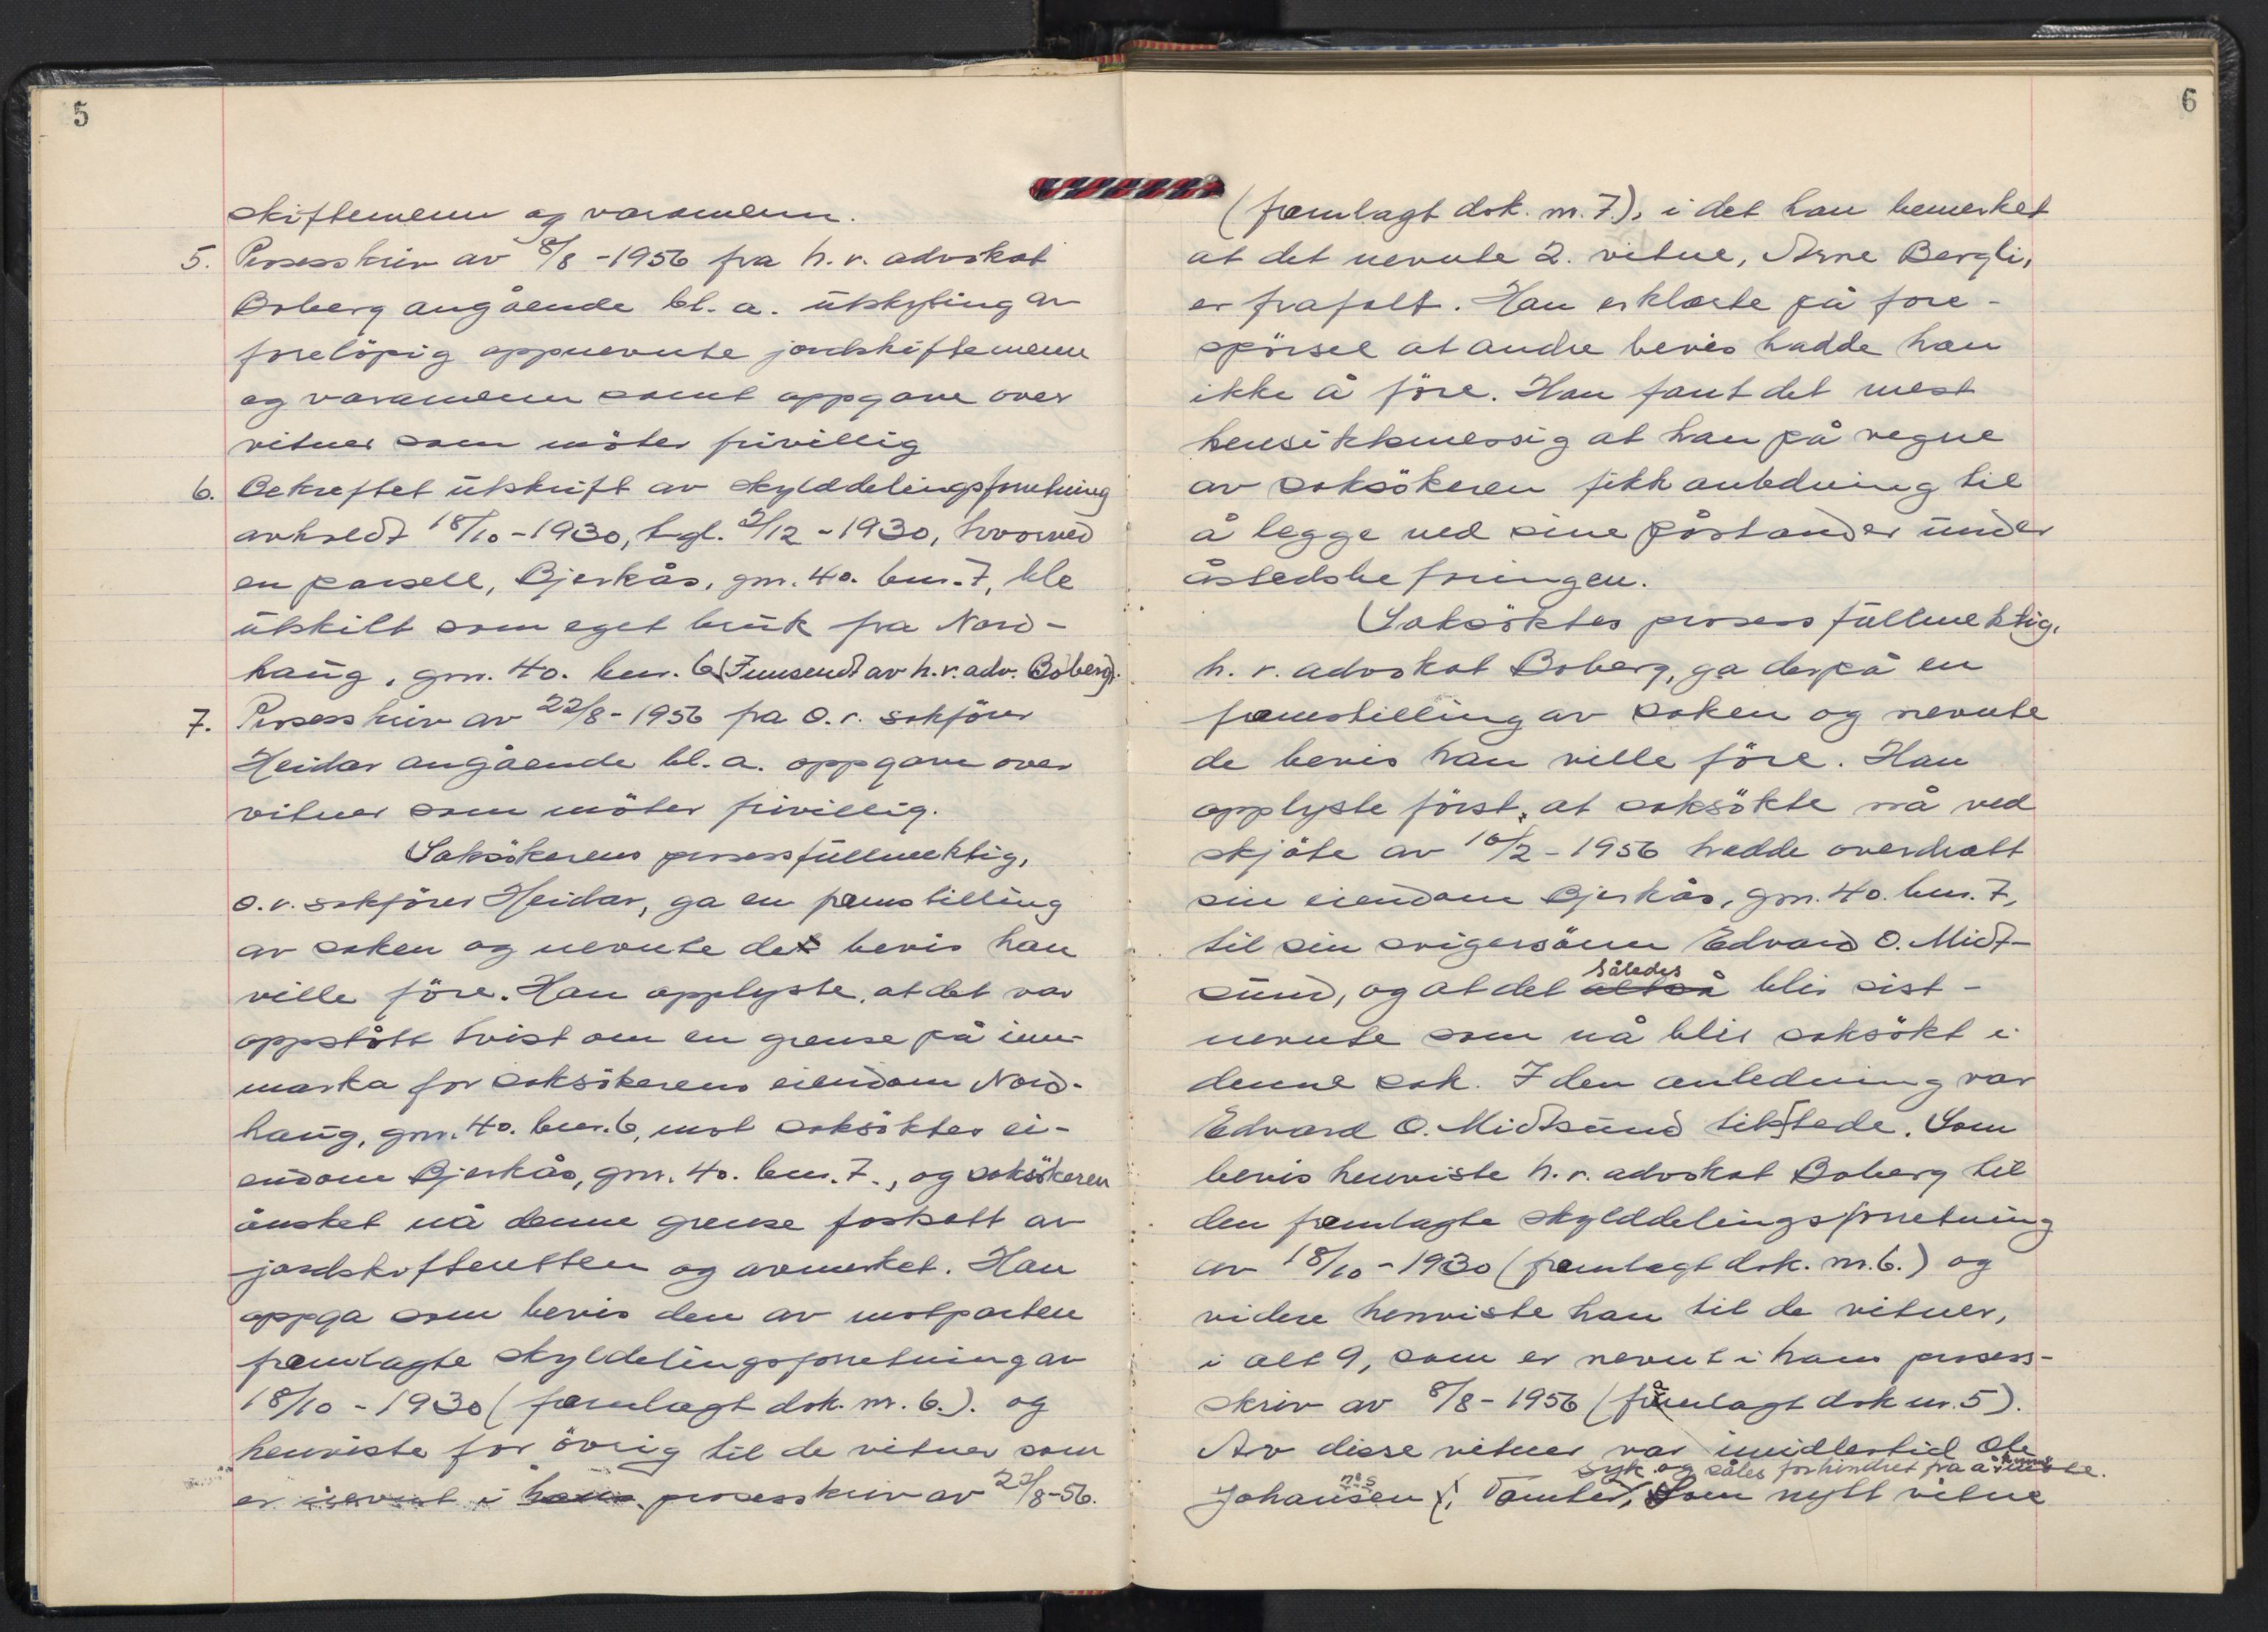 5
skiftemenn og varamenn.
5. Prosesskriv av 8/8-1956 fra h.r. advokat
Boberg angående bl. a. utskyting av
forelöpig oppnevnte jordskiftemenn
og varamenn samt oppgave over
vitner som möter frivillig
6. Bekreftet utskrift av skylddelingsforretning
avholdt 18/10-1930, tgl. 2/12-1930, hvorved
en parsell, Bjerkås, gnr. 40. bnr. 7, ble
utskilt som eget bruk fra Nord-
haug, gnr. 40. bnr. 6 (Innsendt av h.r. adv. Boberg).
7. Prosesskriv av 22/8-1956 fra o.r. sakförer
Heidar angående bl. a. oppgave over
vitner som möter frivillig.
Saksökerens prosessfullmektig,
o.r. sakförer Heidar, ga en framstilling
av saken og nevnte de bevis han
ville före. Han opplyste, at det var
oppstått tvist om en grense på inn-
marka for saksökerens eiendom Nord-
haug, gnr. 40. bnr. 6, mot saksöktes ei-
endom Bjerkås, gnr. 40. bnr. 7., og saksökeren
önsket nå denne grense fastsatt av
jordskifteretten og avmerket. Han
oppga som bevis den av motparten
framlagte skyldelingsforretning av
18/10-1930 (framlagt dok. nr. 6.). og
henviste for övrig til de vitner som
er nevnt i hans prosesskriv av 22/8-56.
6
(framlagt dok. nr. 7.), i det han bemerket
at det nevnte 2. vitne, Arne Bergli,
er frafalt. Han erklærte på fore-
spörsel at andre bevis hadde han
ikke å före. Han fant det mest
hensiktsmessig at han på vegne
av saksökeren fikk anledning til
å legge ned sine påstander under
åstedsbefaringen.
Saksöktes prosessfullmektig,
h.r. advokat Boberg, ga derpå en
framstilling av saken og nevnte
de bevis han ville före. Han
opplyste först, at saksökte nå ved
skjöte av 16/2-1956 hadde overdratt
sin eiendom Bjerkås, gnr. 40. bnr. 7,
til sin svigersönn Edvard O. Midt-
sund, og at det altså således blir sist-
nevnte som nå blir saksökt i
denne sak. I den anledning var
Edvard O. Midtsund tilstede. Som
bevis henviste h.r. advokat Boberg til
den framlagte skylddelingsforretning
av 18/10-1930 (framlagt dok. nr. 6.) og
videre henviste han til de vitner,
i alt 9, som er nevnt i hans prosess-
skriv av 8/8-1956 (framlagt dok nr. 5).
Av disse vitner var imidlertid Ole
syk og såles forhindret fra å
Johansen, Tomter, Som nytt vitne